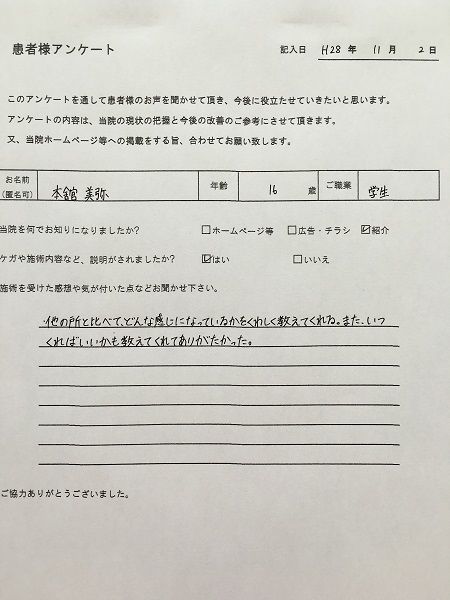 患者様アンケート
記入日 H28 年 11 月 2 日
このアンケートを通して患者様のお声を聞かせて頂き、今後に役立たせていきたいと思います。
アンケートの内容は、当院の現状の把握と今後の改善のご参考にさせて頂きます。
又、当院ホームページ等への掲載をする旨、合わせてお願い致します。
お名前 (匿名可) 本舘 美弥 年齢 16 歳 ご職業 学生
当院を何でお知りになりましたか? □ホームページ等 □広告・チラシ ☑紹介
ケガや施術内容など、説明がされましたか? ☑はい □いいえ
施術を受けた感想や気が付いた点などお聞かせ下さい。
・他の所と比べて、どんな感じになっているかをくわしく教えてくれる。また、いつ
くればいいかも教えてくれてありがたかった。
ご協力ありがとうございました。